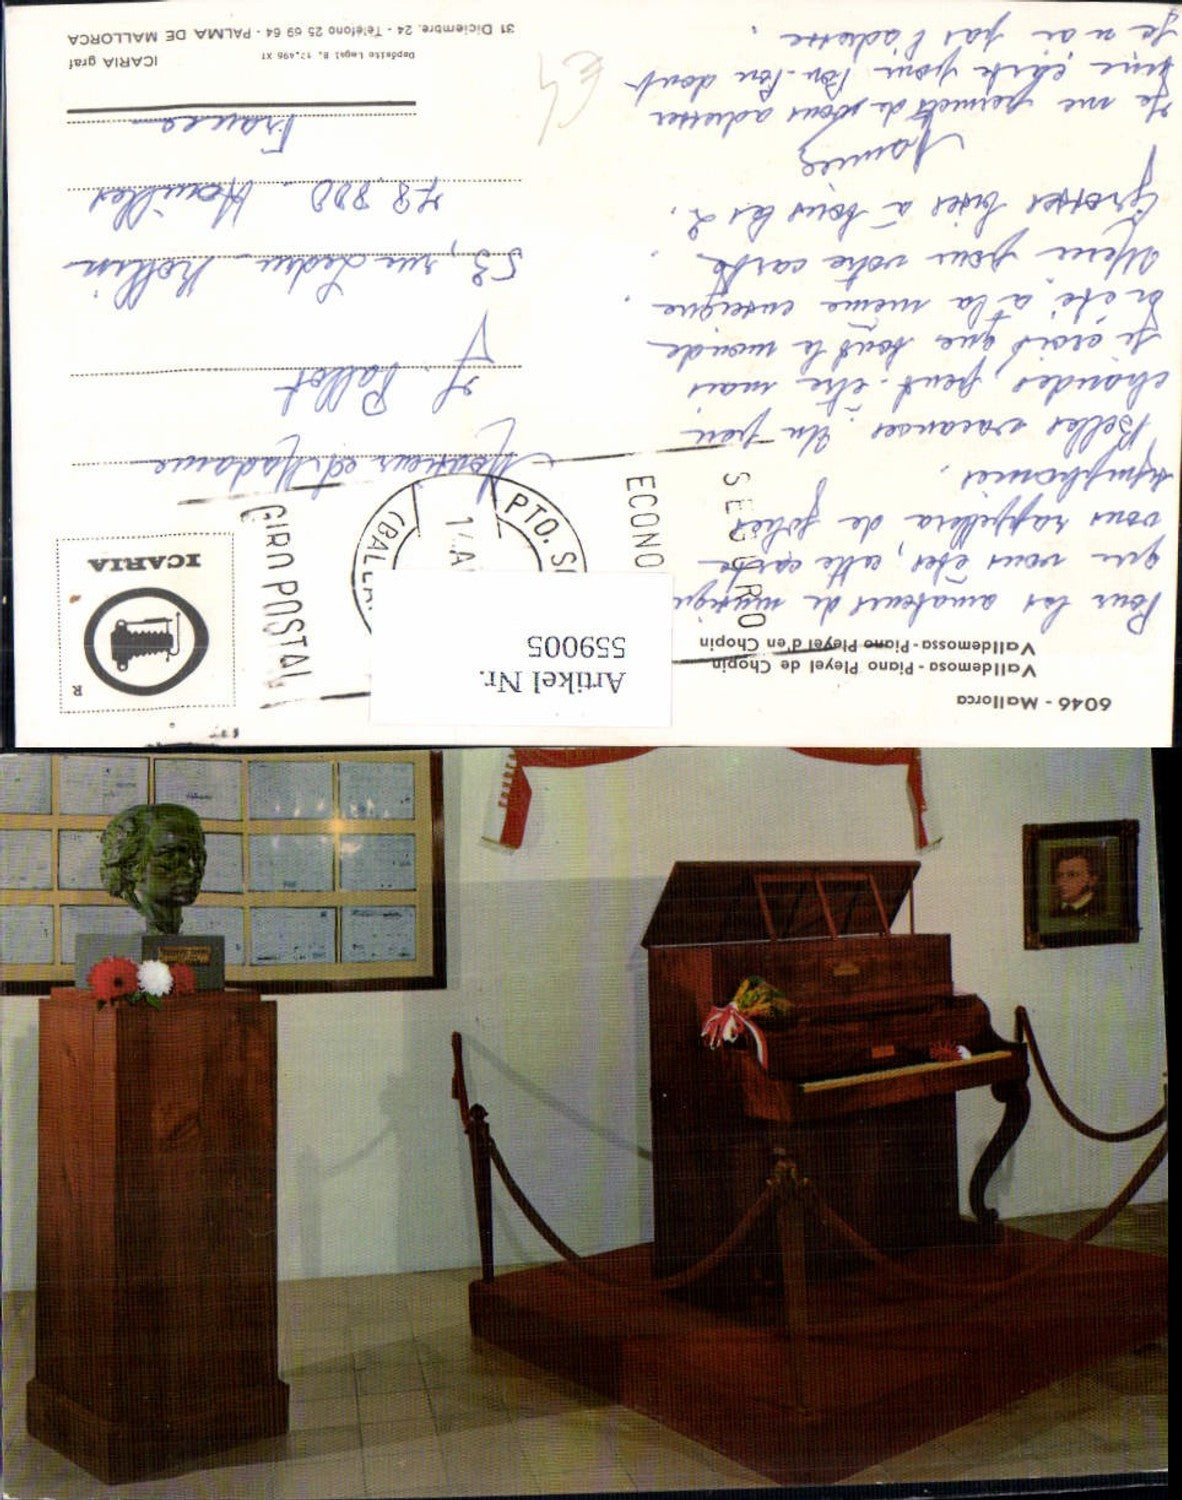 6046 - Mallorca
Valldemosa - Piano Pleyel de Chopin
Valldemosa - Piano Pleyel d'en Chopin
Pour les amateurs de musique
que vous êtes, cette carte
vous rappellera de jolies
symphonies.
Belles vacances. Un peu
chaudes, peut-être mais
je crois que tout le monde
a été à la même enseigne.
Merci pour votre carte.
Grosses bises à tous les 2.
Je me permets de vous adresser
une carte pour Lou-Lou dont
je n'ai pas l'adresse.
Artikel Nr.
559005
GIRO POSTAL
PTO. S
(BALEA
ECONO
SE
RO
ICARIA
R
Monsieur et Madame
J. Pallot
53, rue Ledru-Rollin
78.800 Houilles
France
Depósito Legal B. 17.496 XI
ICARIA graf
31 Diciembre, 24 - Teléfono 25 69 64 - PALMA DE MALLORCA